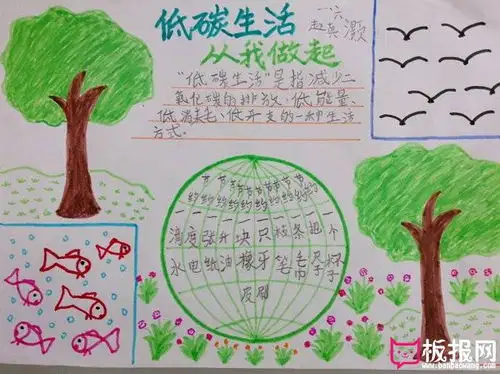 低碳生活
一.六
从我做起
"低碳生活"是指减少二
氧化碳的排放,低能量、
低消耗、低开支的一种生活
方式。
节约一滴水
节约一度电
节约一张纸
节约一升油
节约一块橡皮
节约一只牙刷
节约一枝笔
节约一条毛巾
节约一把尺子
节约一个杯子
板报网
www.banbaowang.com